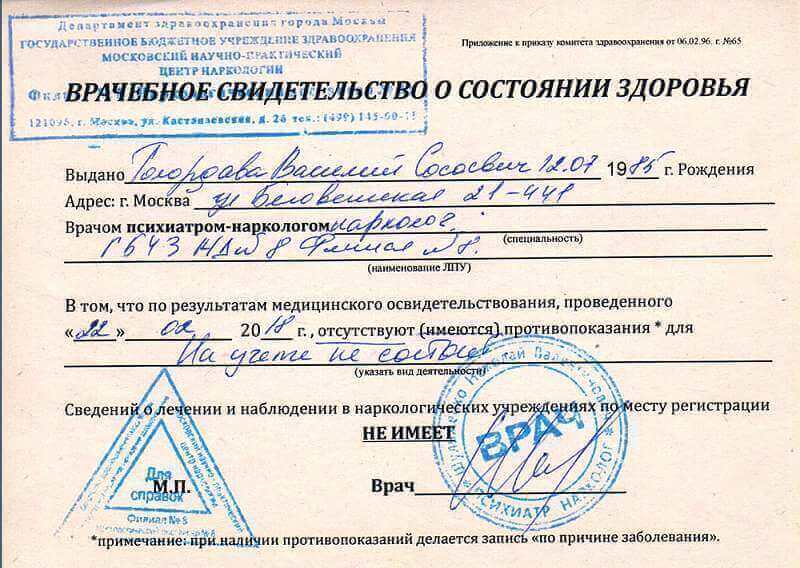 Департамент здравоохранения города Москвы
ГОСУДАРСТВЕННОЕ БЮДЖЕТНОЕ УЧРЕЖДЕНИЕ ЗДРАВООХРАНЕНИЯ
МОСКОВСКИЙ НАУЧНО-ПРАКТИЧЕСКИЙ
ЦЕНТР НАРКОЛОГИИ
121096, г. Москва, ул. Кастанаевская, д. 26 тел.: (499) 145-00-
Приложение к приказу комитета здравоохранения от 06.02.96. г. №65
ВРАЧЕБНОЕ СВИДЕТЕЛЬСТВО О СОСТОЯНИИ ЗДОРОВЬЯ
Выдано Василий Сосоевич 12.07 1985 г. Рождения
Адрес: г. Москва ул Беловежская 21-441
Врачом психиатром-наркологом нарколог.
(специальность)
№ 8 Филиал № 8.
(наименование ЛПУ)
В том, что по результатам медицинского освидетельствования, проведенного
«22» 02 2018 г., отсутствуют (имеются) противопоказания * для
На учете не состоит
(указать вид деятельности)
Сведений о лечении и наблюдении в наркологических учреждениях по месту регистрации
НЕ ИМЕЕТ
М.П. Врач
Для
справок
Филиал № 8
ВРАЧ
Николай Валентинович
ПСИХИАТР НАРКОЛОГ
*примечание: при наличии противопоказаний делается запись «по причине заболевания».